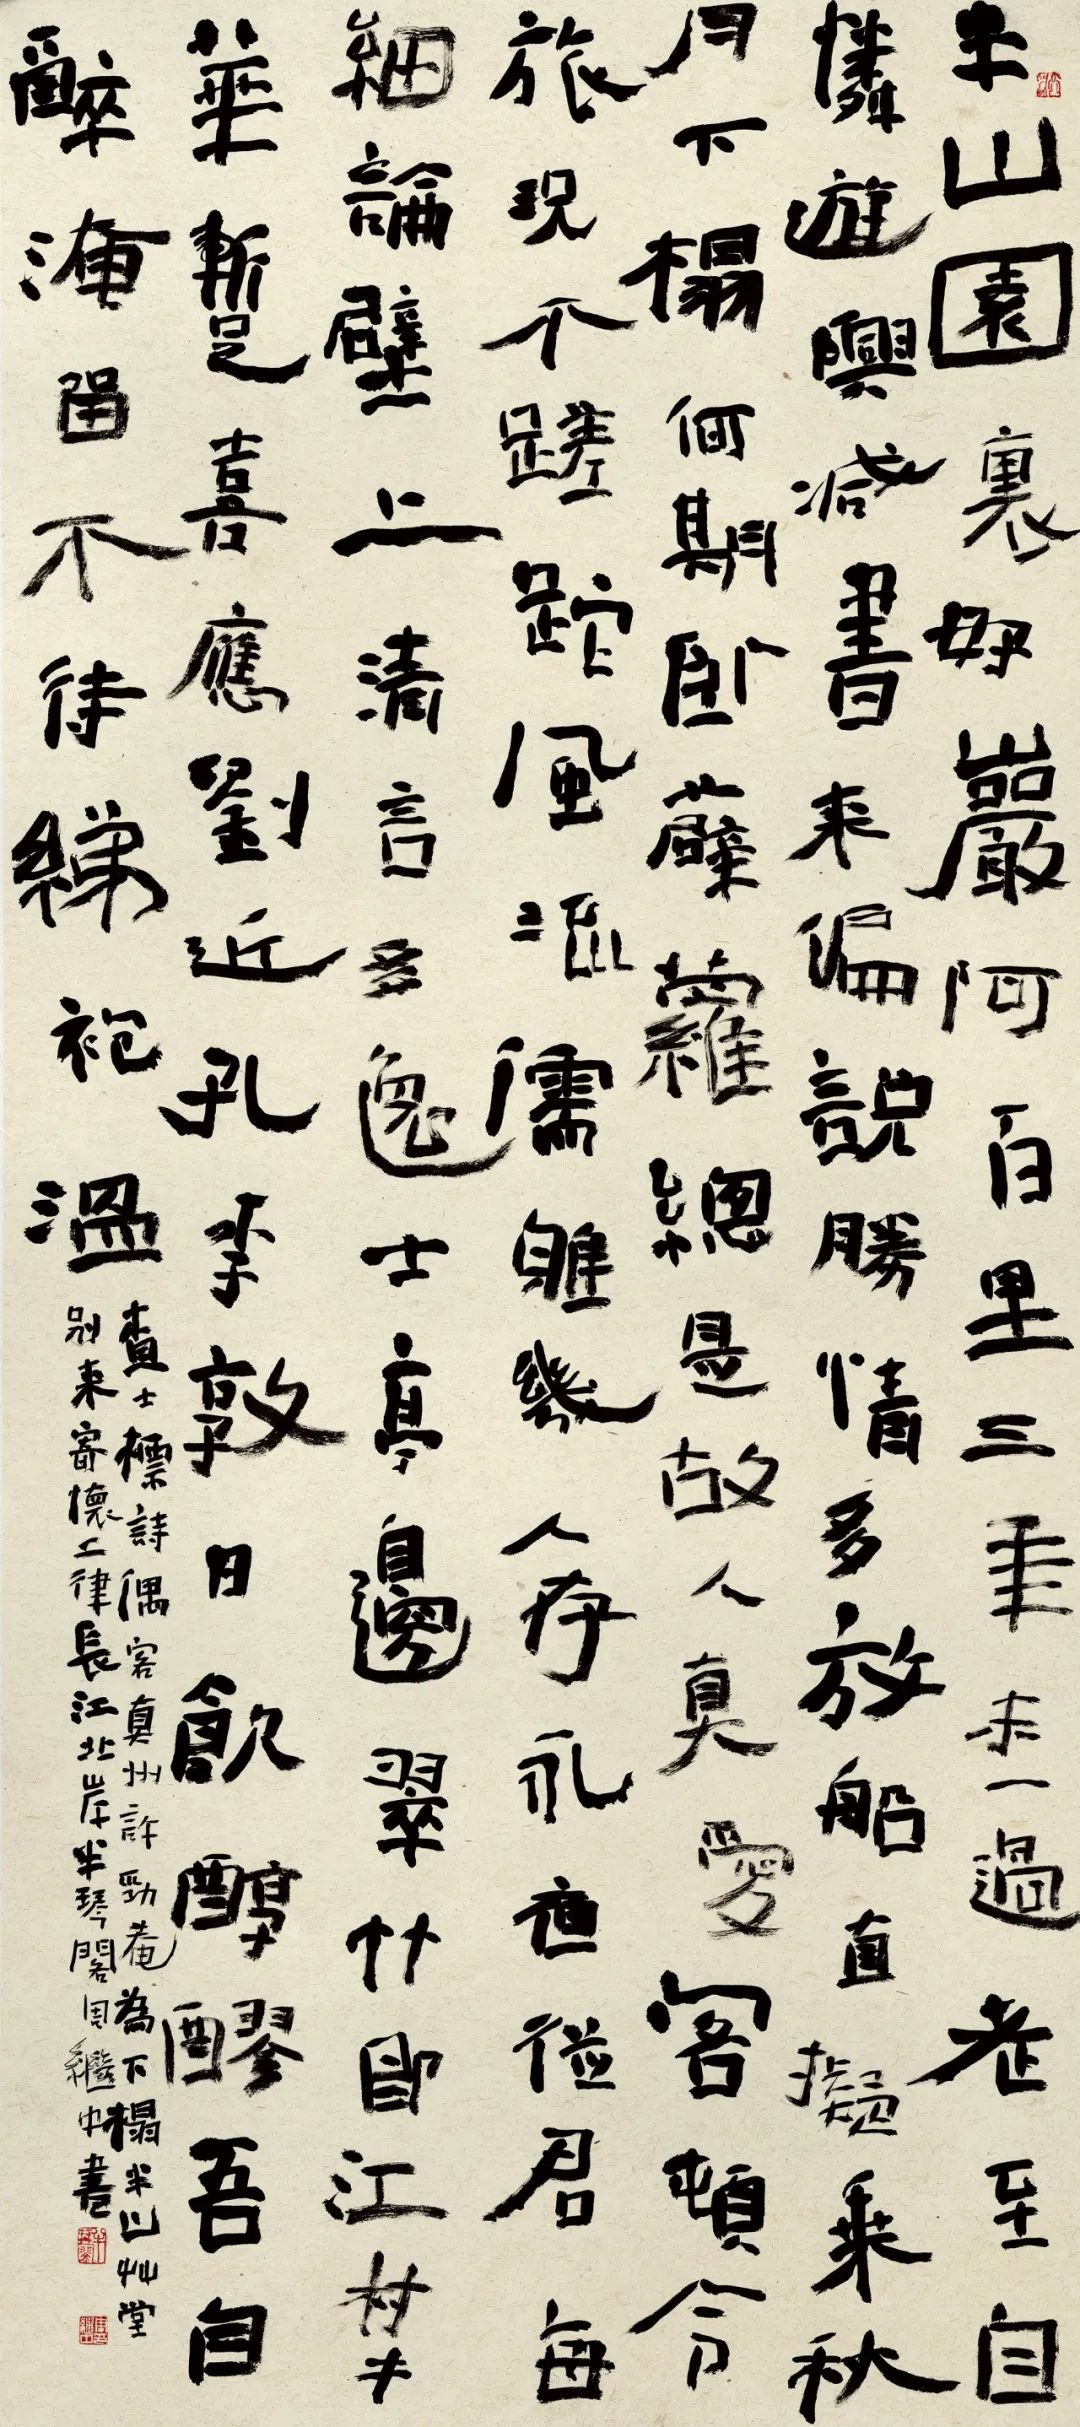 半山園裏好巖阿百里三年未一過老至自
憐遊興減書來偏説勝情多放船直擬乘秋
月下榻何期卧薜蘿總是故人真愛客頓令
旅況不蹉跎風流儒雅幾人存永夜從君每
細論壁上清言多逸士亭邊翠竹即江村才
華暫足喜應劉近孔李敦日飲醇醪吾自
醉淹留不待綈袍溫
查士標詩偶客真州許勁菴為下榻半山艸堂
別來寄懷二律長江北岸半琴閣周繼中書